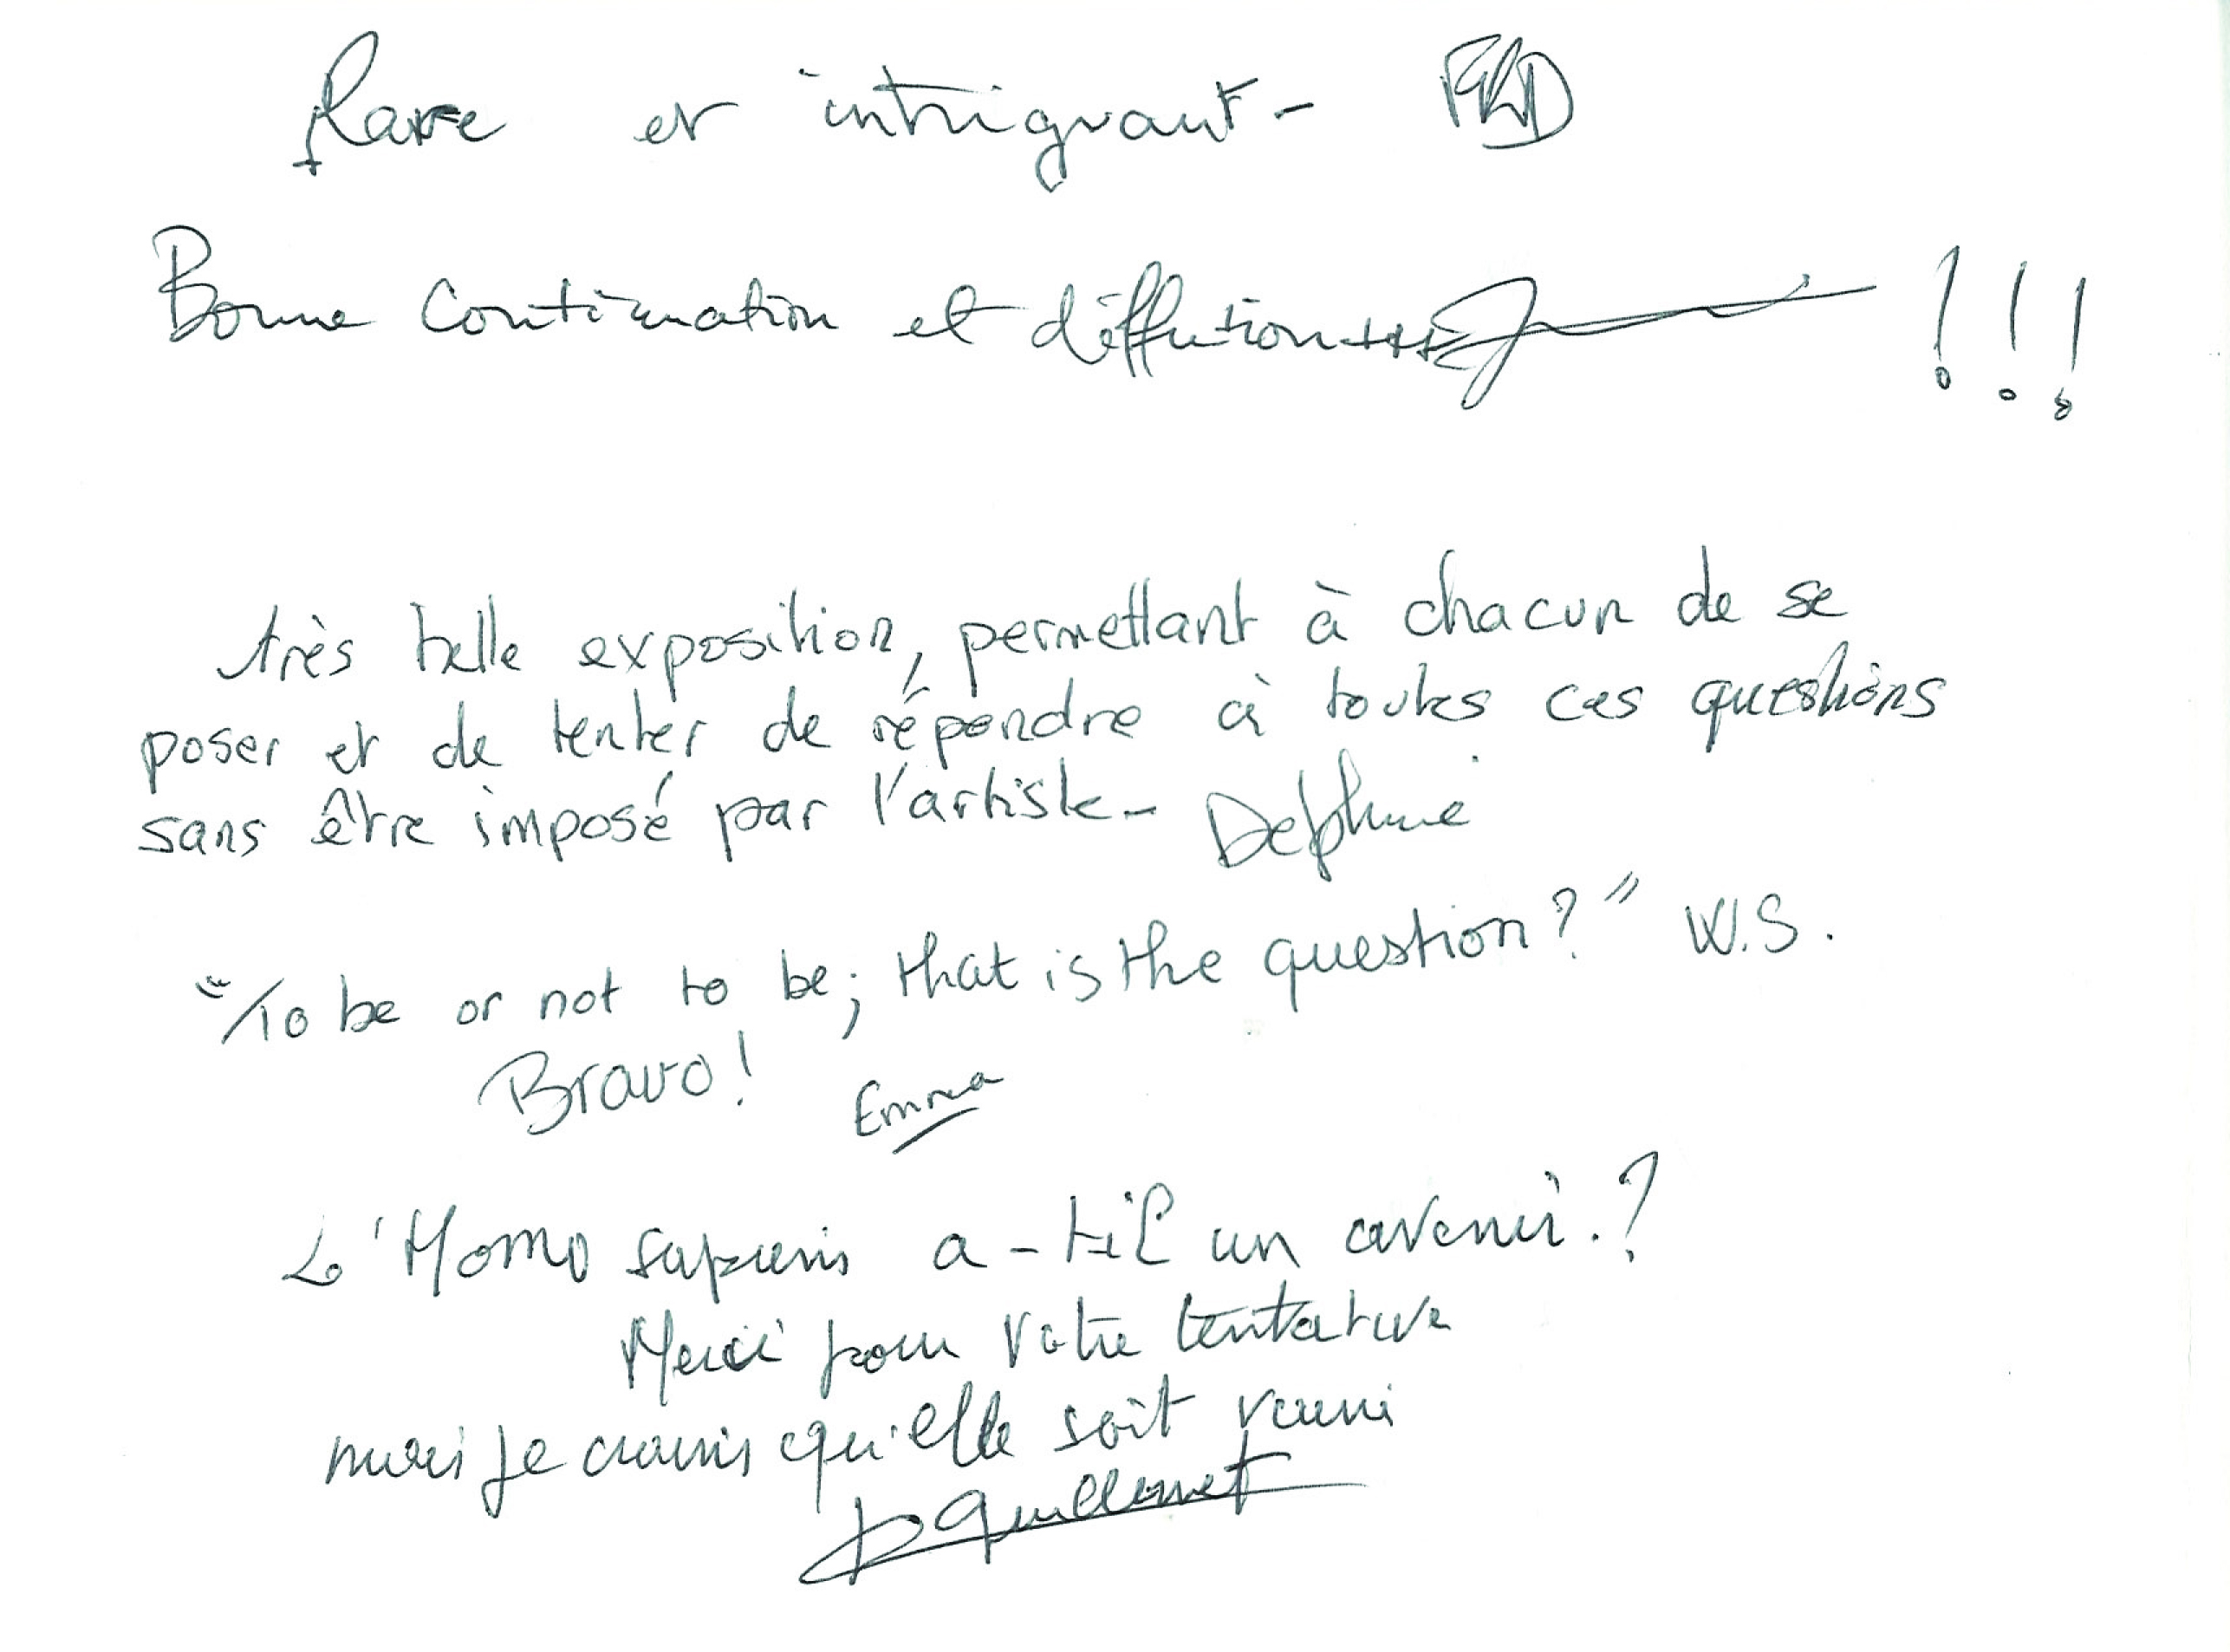 Rare et intrigant -
Bonne continuation et diffusion +++ !!!
très belle exposition, permettant à chacun de se
poser et de tenter de répondre à toutes ces questions
sans être imposé par l'artiste - Delphine
"To be or not to be; that is the question?" W.S.
Bravo! Emma
L'Homo sapiens a-t-il un avenir.?
Merci pour votre tentative
mais je crains qu'elle soit